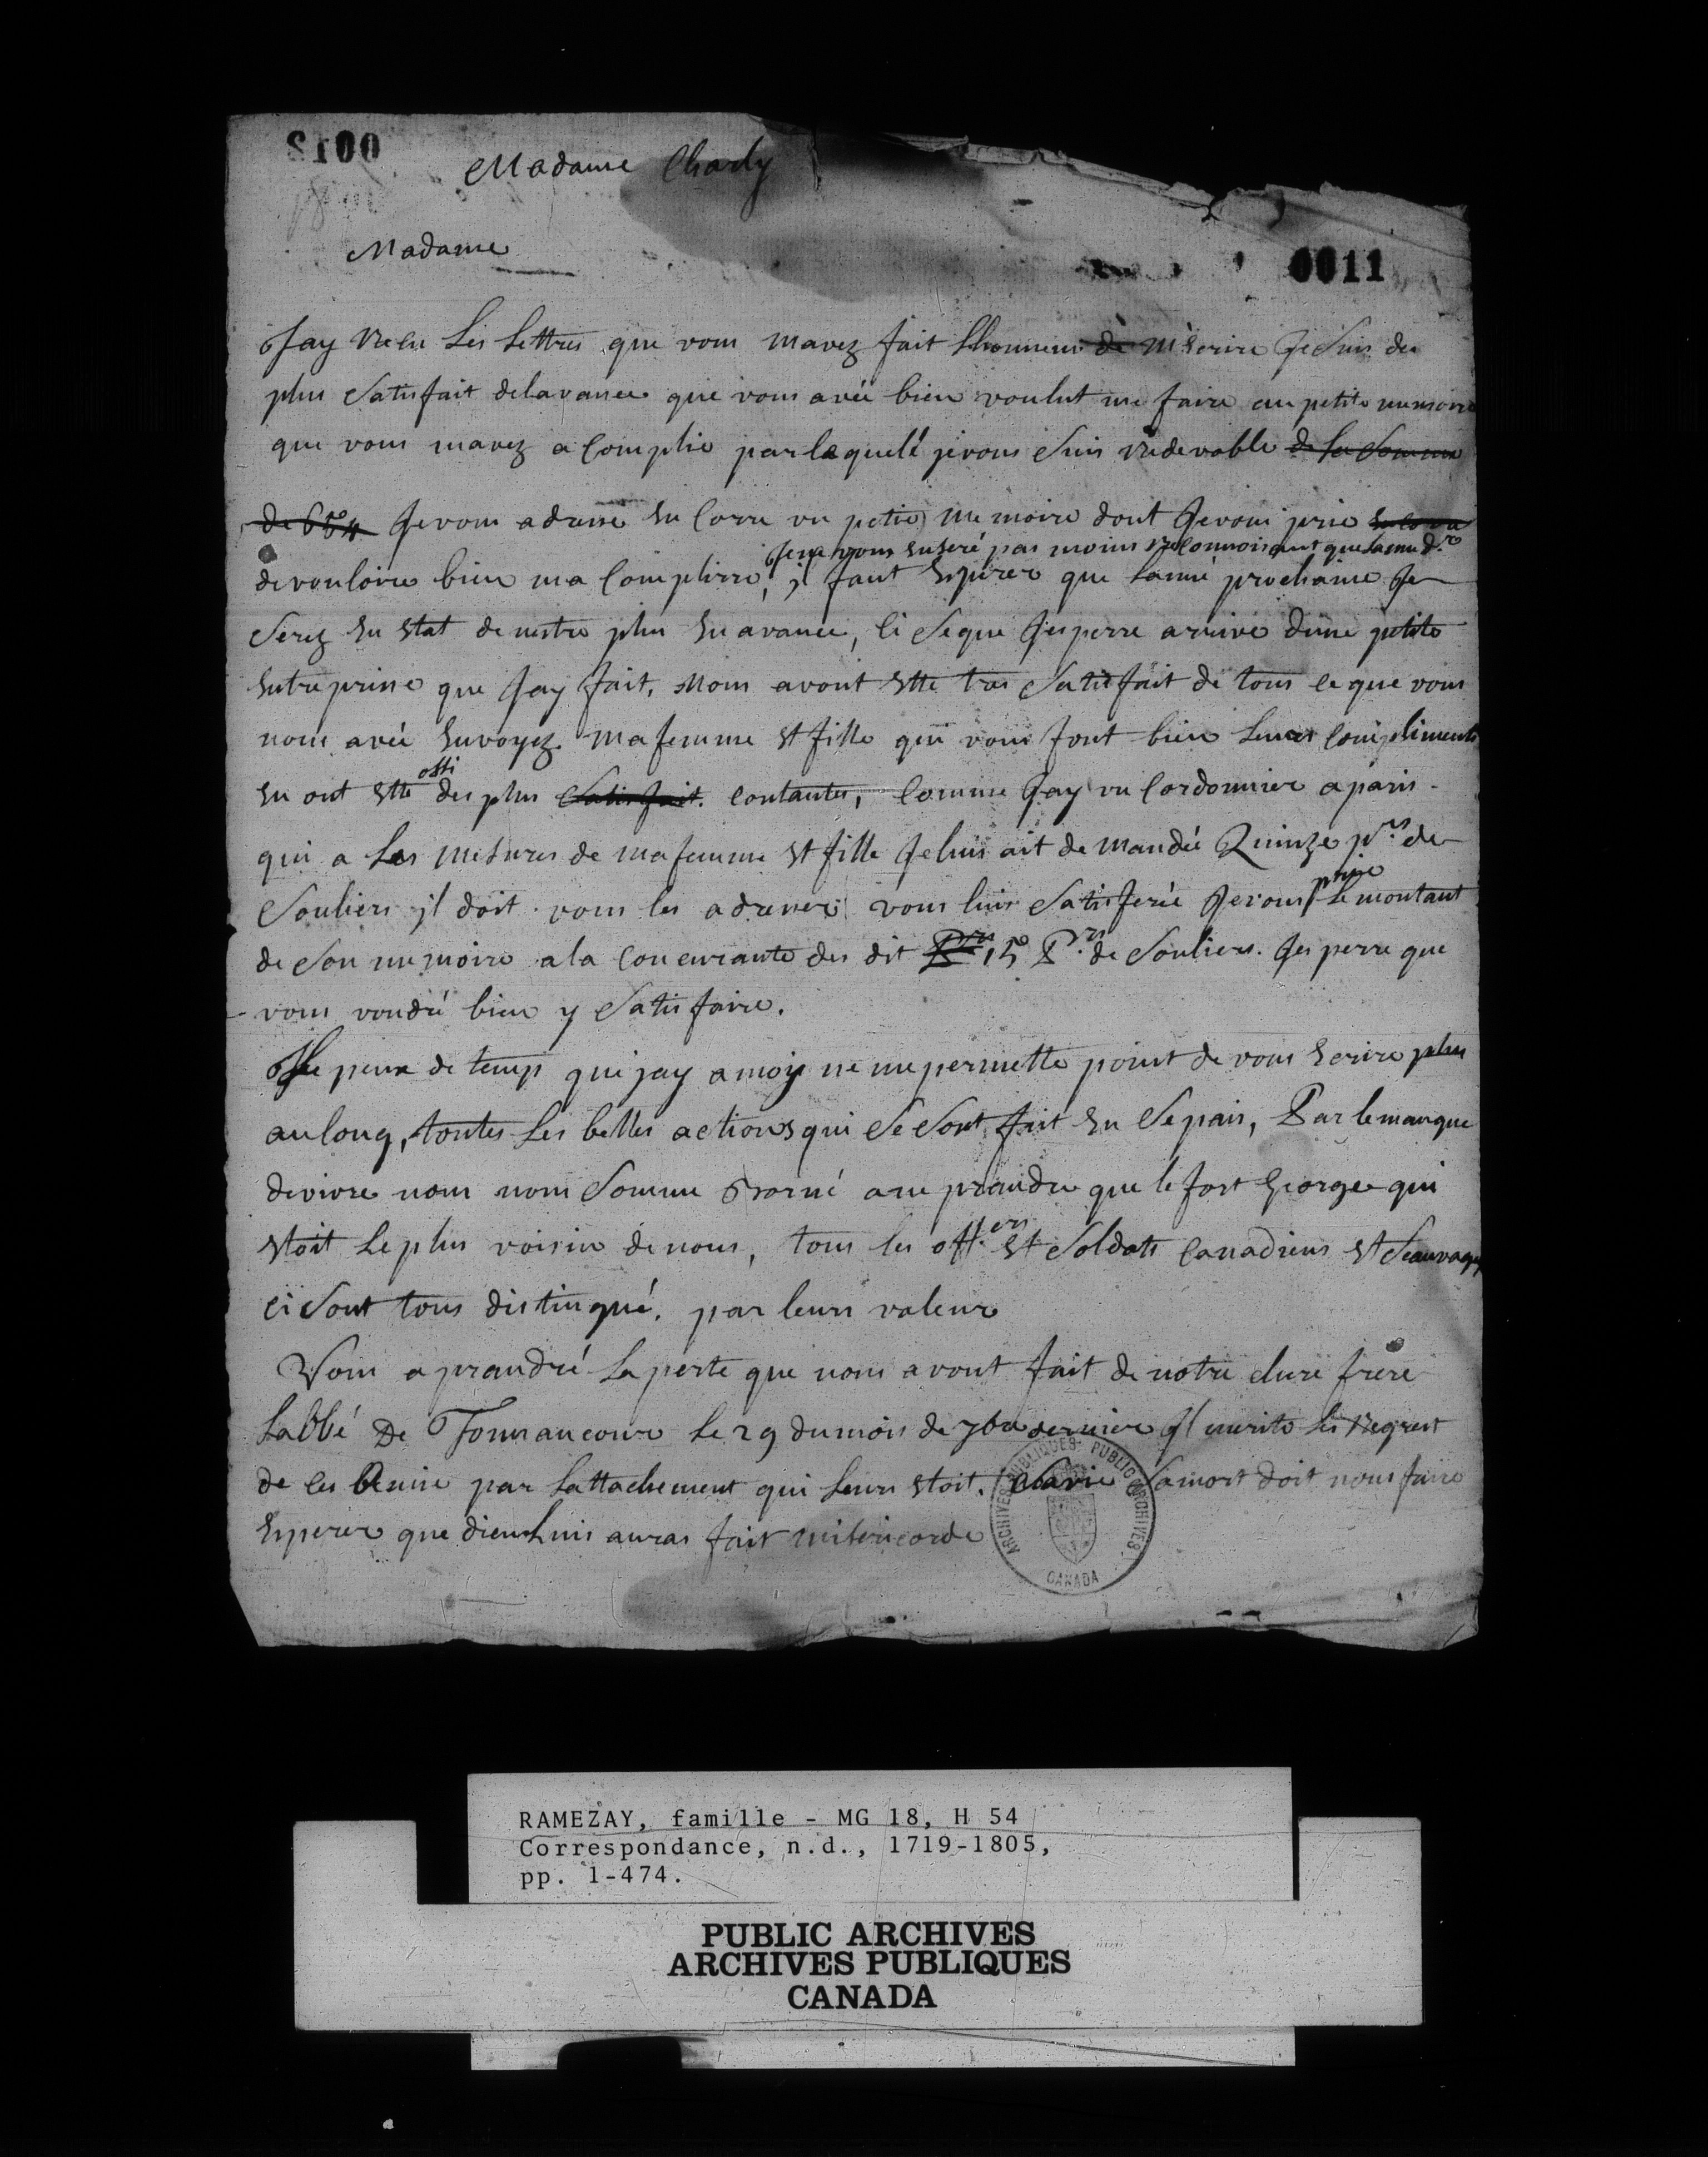 0012
Madame Charly
Madame
0011
Jay Recu Les Lettres que vous mavez fait Lhonneur de m'Ecrire Je Suis des
plus Satisfait delavance que vous avéz bien voulut me faire au petite memoire
que vous mavez a Complie par laquelle je vous Suis redevable de la Somme
de 654 Je vous adresse En Corre un petit Memoire dont Je vous prie
Je ne vous Enseré pas moins reConnoissant que Lanné dre
de vouloire bien ma Complirre, il faut Esperer que Lanné prochaine Je
Serez En Etat de mettre plus En avance, Ci Se que Jesperre arrive dune petite
Entreprise que Jay fait. Nous avont Ette tres Satisfait de tous ce que vous
nous avéz Envoyez ma femme Et fille qui vous font bien Leurs Compliments
En ont Ette ossi des plus Satisfait. Contantes, Comme Jay un Cordonnier a paris
qui a Les Mesures de ma femme Et fille Je luis ait demandée Quinze prs de
Souliers il doit vous les adresser vous luis Satisferée Je vous prie Le montant
de Son memoire a la Concurrante des dit Prs 15 Prs de Souliers. Jesperre que
vous voudré bien y Satisfaire.
Le peux de temps que jay a moy ne me permette point de vous Ecrire plus
au long, toutes Les belles actions qui Se Sont fait En Se pais, Par le manque
de vivre nous nous Somme Borné a ne prandre que le fort George qui
Etoit Le plus voisin de nous, tous les offers Et Soldats Canadiens Et Seauvages
Ci Sont tous distingué. par leurs valeur
Vous a prandré La perte que nous avont fait de notre chere frere
Labbé De Tonnancour Le 29 du mois de 7bre dernier Il merite Les Regrest
de Ces Amie par Lattachement qui Leurs Etoit. Sa vie Sa mort doit nous faire
Esperer que dieu Luis auras fait misericorde
ARCHIVES PUBLIQUES · PUBLIC ARCHIVES · CANADA
RAMEZAY, famille - MG 18, H 54
Correspondance, n.d., 1719-1805,
pp. 1-474.
PUBLIC ARCHIVES
ARCHIVES PUBLIQUES
CANADA